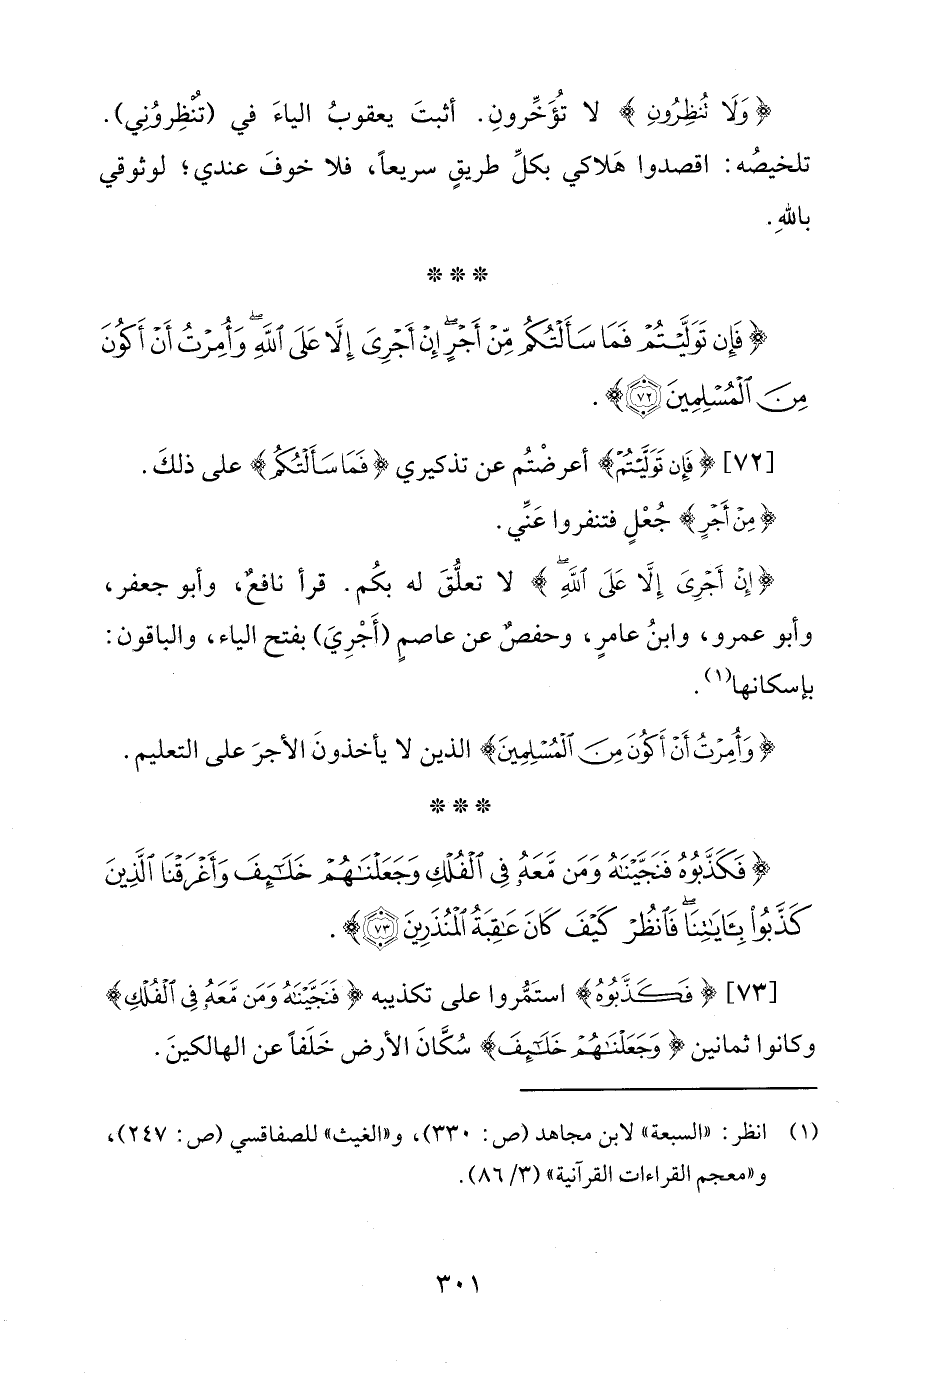 ﴿وَلَا نُنظِرُونِ﴾ لا تُؤَخِّرونِ. أثبتَ يعقوبُ الياءَ في (تُنْظِرُونِي).
تلخيصُه: اقصدوا هَلاكي بكلِّ طريقٍ سريعاً، فلا خوفَ عندي؛ لوثوقي
باللهِ.
* * *
﴿فَإِن تَوَلَّيْتُمْ فَمَا سَأَلْتُكُم مِّنْ أَجْرٍ ۖ إِنْ أَجْرِىَ إِلَّا عَلَى ٱللَّهِ ۖ وَأُمِرْتُ أَنْ أَكُونَ
مِنَ ٱلْمُسْلِمِينَ ٧٢﴾.
[٧٢] ﴿فَإِن تَوَلَّيْتُمْ﴾ أعرضْتُم عن تذكيري ﴿فَمَا سَأَلْتُكُم﴾ على ذلكَ.
﴿مِنْ أَجْرٍ﴾ جُعْلٍ فتنفروا عَنِّي.
﴿إِنْ أَجْرِىَ إِلَّا عَلَى ٱللَّهِ ۖ﴾ لا تعلُّقَ له بكُم. قرأ نافعٌ، وأبو جعفر،
وأبو عمرو، وابنُ عامرٍ، وحفصٌ عن عاصمٍ (أَجْرِيَ) بفتح الياء، والباقون:
بإسكانها(١).
﴿وَأُمِرْتُ أَنْ أَكُونَ مِنَ ٱلْمُسْلِمِينَ﴾ الذين لا يأخذونَ الأجرَ على التعليم.
* * *
﴿فَكَذَّبُوهُ فَنَجَّيْنَٰهُ وَمَن مَّعَهُۥ فِى ٱلْفُلْكِ وَجَعَلْنَٰهُمْ خَلَٰٓئِفَ وَأَغْرَقْنَا ٱلَّذِينَ
كَذَّبُوا۟ بِـَٔايَٰتِنَا ۖ فَٱنظُرْ كَيْفَ كَانَ عَٰقِبَةُ ٱلْمُنذَرِينَ ٧٣﴾.
[٧٣] ﴿فَكَذَّبُوهُ﴾ استَمُّروا على تكذيبه ﴿فَنَجَّيْنَٰهُ وَمَن مَّعَهُۥ فِى ٱلْفُلْكِ﴾
وكانوا ثمانين ﴿وَجَعَلْنَٰهُمْ خَلَٰٓئِفَ﴾ سُكَّانَ الأرضِ خَلَفاً عن الهالكينَ.
(١) انظر: «السبعة» لابن مجاهد (ص: ٣٣٠)، و«الغيث» للصفاقسي (ص: ٢٤٧)،
و«معجم القراءات القرآنية» (٣/ ٨٦).
٣٠١